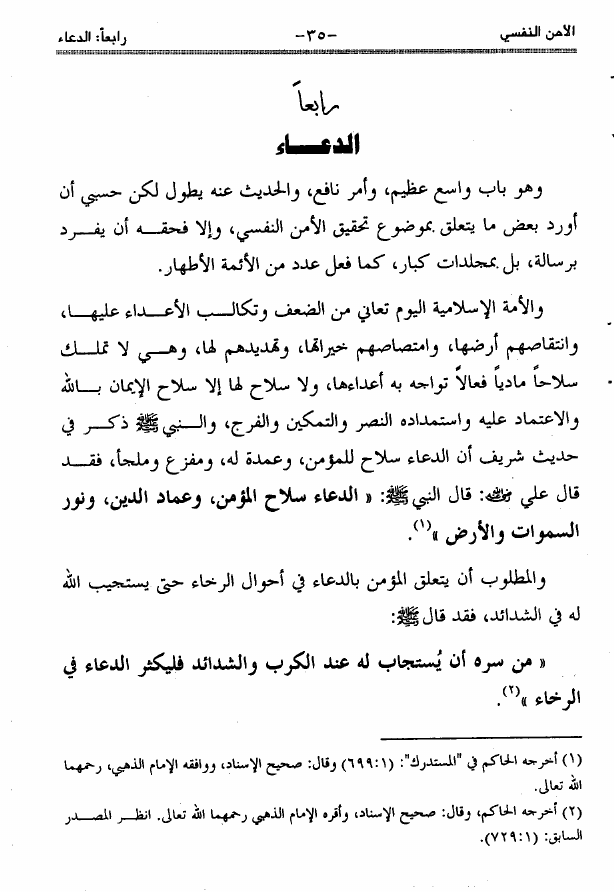 الأمن النفسي -٣٥- رابعاً: الدعاء
رابعاً
الدعـــاء
وهو باب واسع عظيم، وأمر نافع، والحديث عنه يطول لكن حسبي أن
أورد بعض ما يتعلق بموضوع تحقيق الأمن النفسي، وإلا فحقـه أن يفـرد
برسالة، بل بمجلدات كبار، كما فعل عدد من الأئمة الأطهار.
والأمة الإسلامية اليوم تعاني من الضعف وتكالـب الأعـداء عليهـا،
وانتقاصهم أرضها، وامتصاصهم خيراتها، وتهديدهم لها، وهـي لا تملـك
سلاحاً مادياً فعالاً تواجه به أعداءها، ولا سلاح لها إلا سلاح الإيمان بـالله
والاعتماد عليه واستمداده النصر والتمكين والفرج، والـنبي ﷺ ذكـر في
حديث شريف أن الدعاء سلاح للمؤمن، وعمدة له، ومفزع وملجأ، فقـد
قال علي رضي الله عنه: قال النبي ﷺ: « الدعاء سلاح المؤمن، وعماد الدين، ونور
السموات والأرض »(١).
والمطلوب أن يتعلق المؤمن بالدعاء في أحوال الرخاء حتى يستجيب الله
له في الشدائد، فقد قال ﷺ:
« من سره أن يُستجاب له عند الكرب والشدائد فليكثر الدعاء في
الرخاء »(٢).
(١) أخرجه الحاكم في "المستدرك": (٦٩٩:١) وقال: صحيح الإسناد، ووافقه الإمام الذهبي، رحمهما
الله تعالى.
(٢) أخرجه الحاكم، وقال: صحيح الإسناد، وأقره الإمام الذهبي رحمهما الله تعالى. انظـر المصـدر
السابق: (٧٢٩:١).